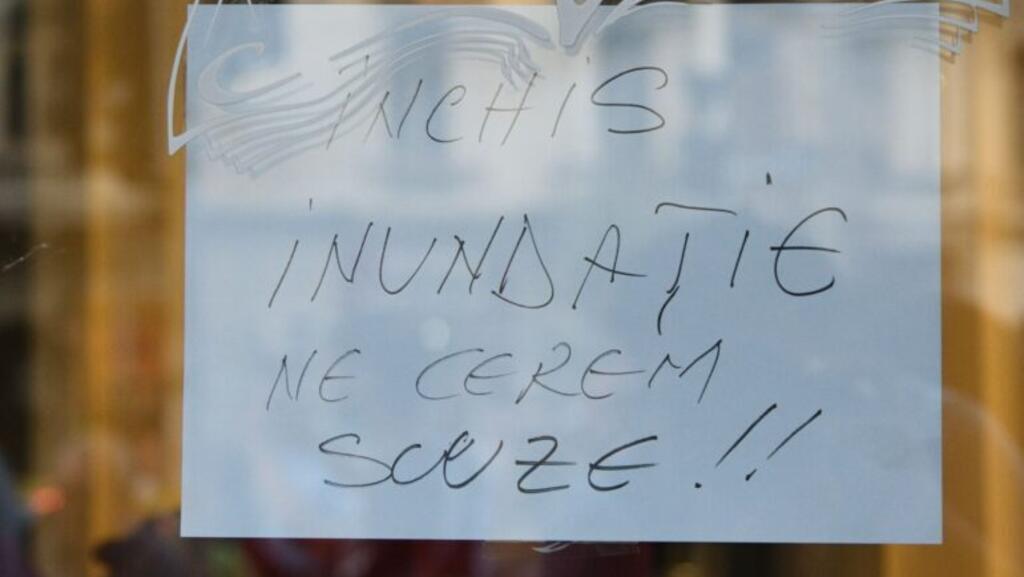 ÎNCHIS
INUNDAȚIE
NE CEREM
SCUZE!!